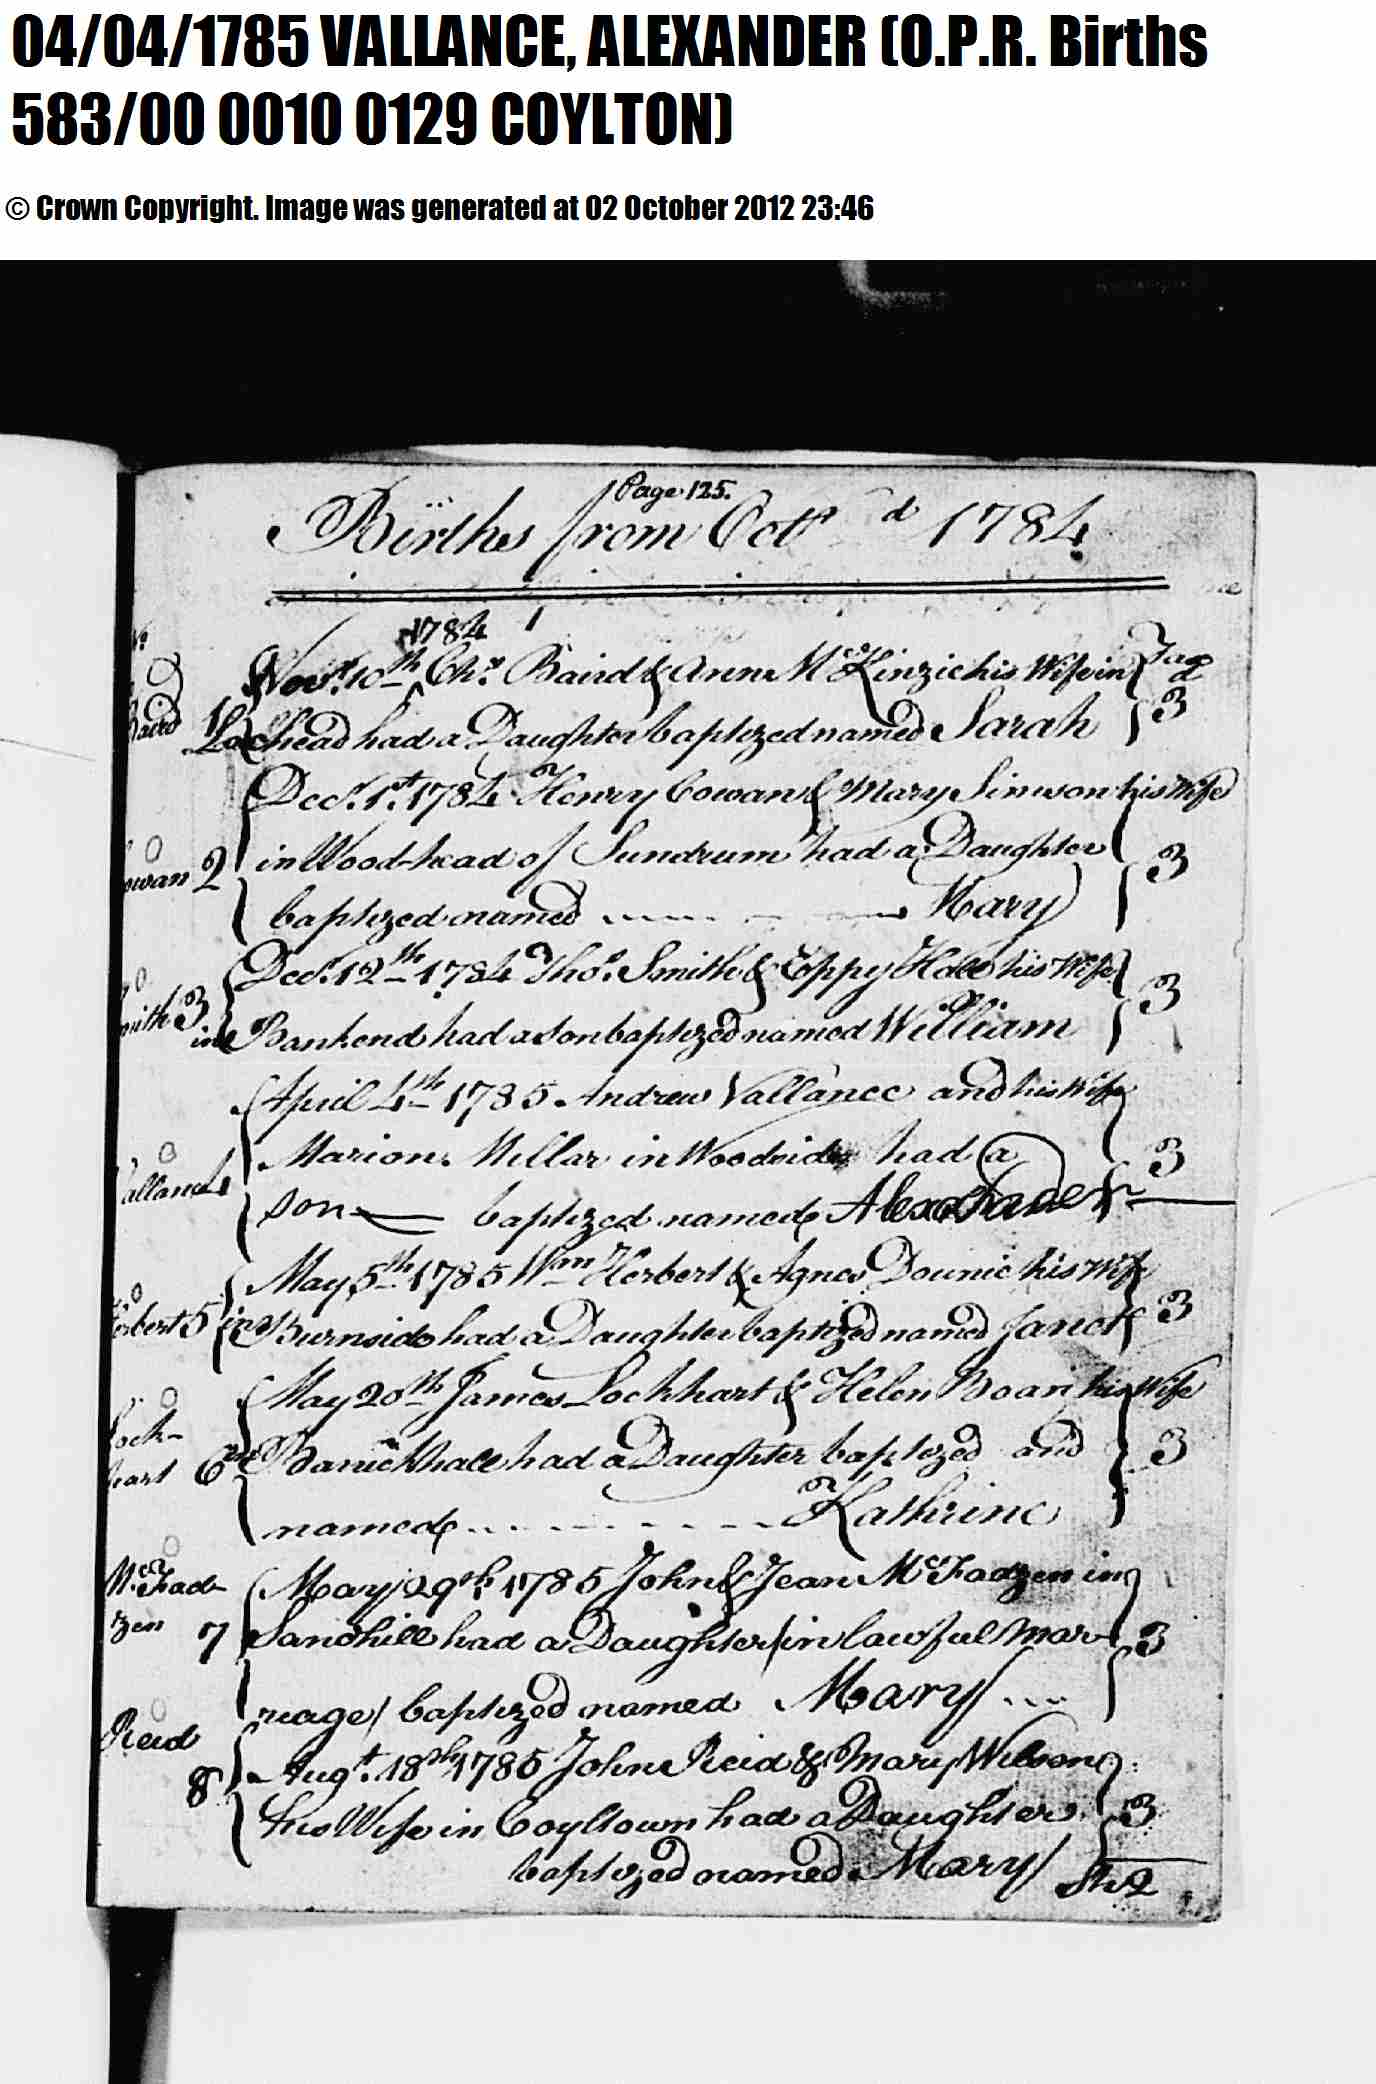 04/04/1785 VALLANCE, ALEXANDER (O.P.R. Births
583/00 0010 0129 COYLTON)
© Crown Copyright. Image was generated at 02 October 2012 23:46
Page 125.
Births from Octr d 1784
1784
Novr. 10th Chs. Baird & Ann McKinzie his Wife in Tax d
Baird 1 Lochead had a Daughter baptized named Sarah 3
Decr. 1st 1784 Henry Cowan & Mary Simson his Wife
owan 2 in Wood-head of Sundrum had a Daughter 3
baptized named Mary
Decr. 12th 1784 Thos. Smith & Eppy Hall his Wife
mith 3 in Bankend had a son baptized named William 3
April 4th 1785 Andrew Vallance and his Wife
allance 4 Marion Millar in Woodside had a 3
son baptized named Alexander
May 5th 1785 Wm Herbert & Agnes Dounie his Wife
erbert 5 in Burnside had a Daughter baptized named Janet 3
May 20th James Lockhart & Helen Boan his Wife
Lock-
hart 6 in Barnickhall had a Daughter baptized and 3
named Kathrine
McFad- May 29th 1785 John & Jean McFadzen in
zen 7 Sandhill had a Daughter (in lawful mar- 3
riage) baptized named Mary
Reid Augt. 18th 1785 John Reid & Mary Wilson
8 his Wife in Coyltown had a Daughter 3
baptized named Mary Sh 2